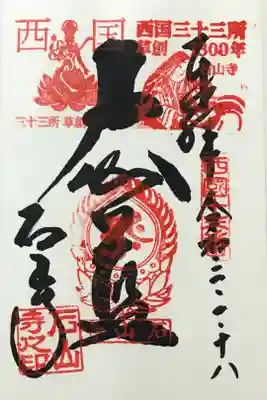 西国
三十三所 草創
西国三十三所
草創1300年
石山寺
奉拝
令和二
十八
大伽藍
石山寺
石山
寺之印